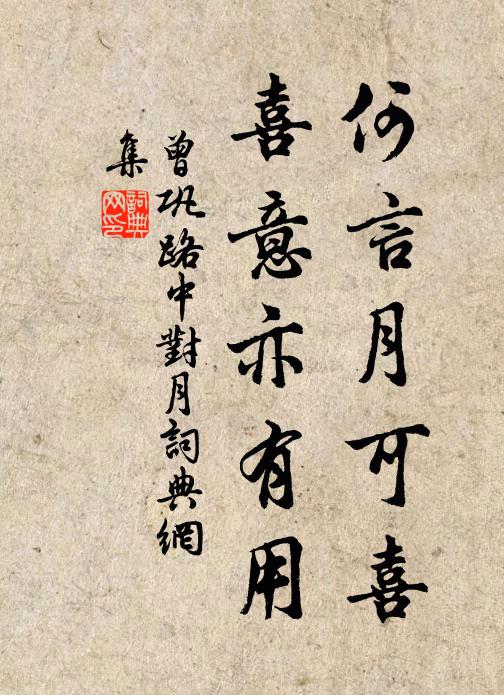 何言月可喜
喜意亦有用
曾巩路中對月詞典網
集
詞典
网印